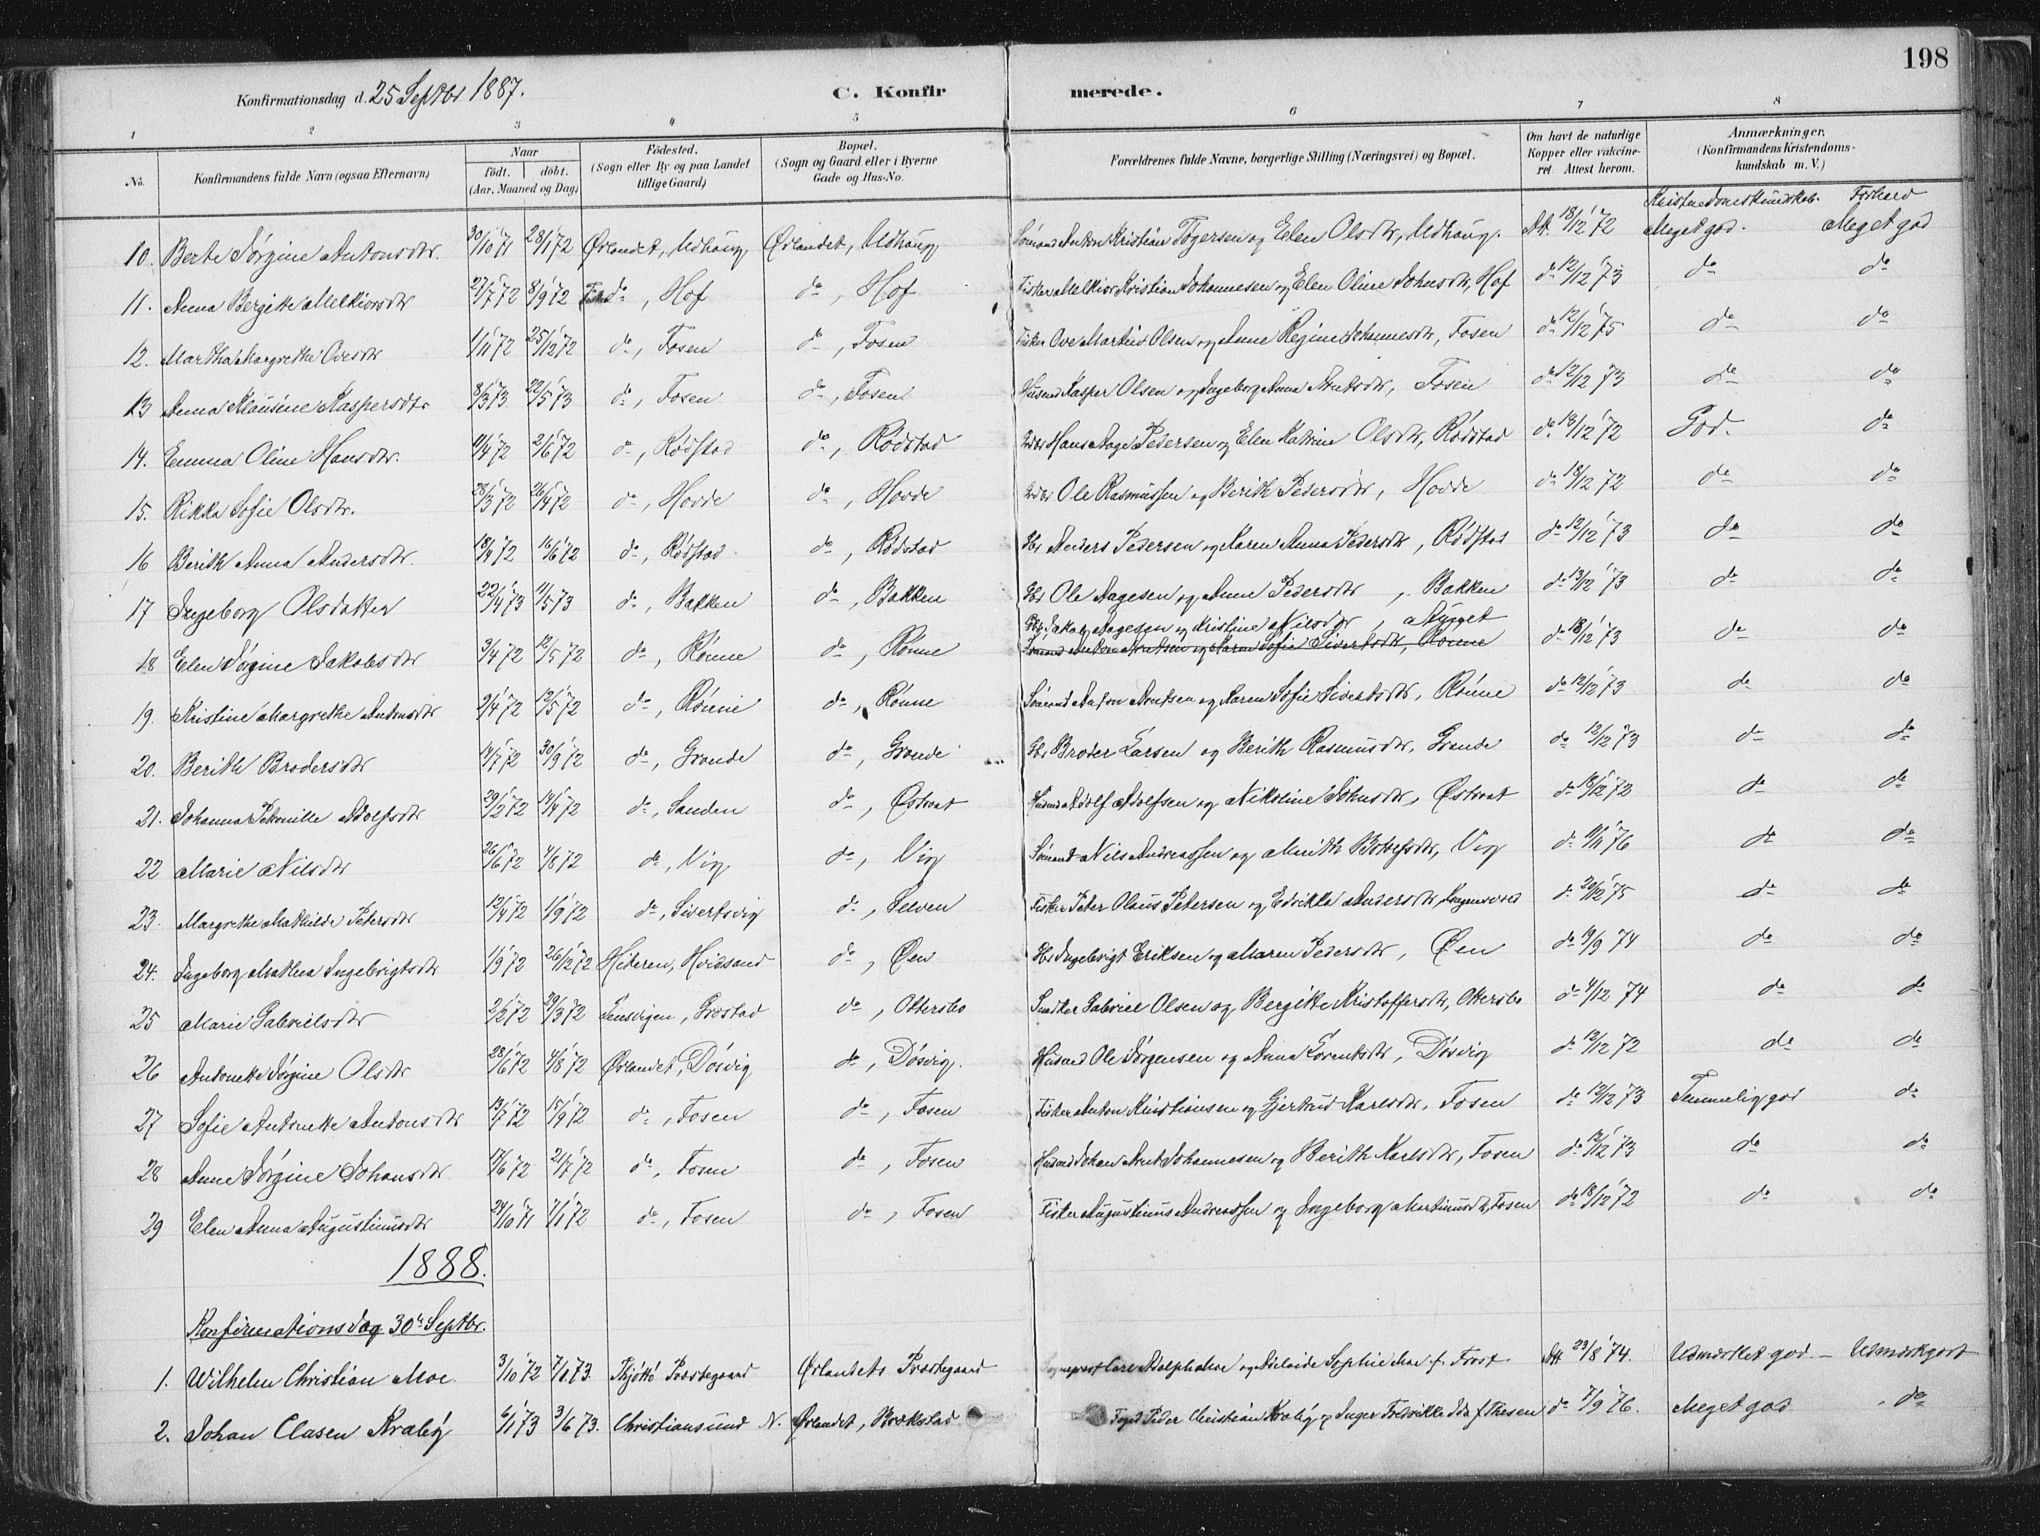 198
Konfirmationsdag d. 25 Septbr 1887. C. Konfirmerede.
1 2 3 4 5 6 7 8
No. Konfirmandens fulde Navn (ogsaa Efternavn) Naar født. døbt. (Aar, Maaned og Dag) Fødested. (Sogn eller By og paa Landet tillige Gaard) Bopæl. (Sogn og Gaard eller i Byerne Gade og Hus-No. Forældrenes fulde Navne, borgerlige Stilling (Næringsvei) og Bopæl. Om havt de naturlige Kopper eller vakcineret. Attest herom. Anmærkninger. (Konfirmandens Kristendomskundskab m. V.)
Kristendomskundskab. Forhold
10. Berte Jørgine Antonsdtr. 30/10 71 28/1 72 Ørlandet, Udhaug Ørlandet, Udhaug Sømand Anton Kristian Tøgersen og Elen Olsdtr, Udhaug. Att. 18/12 72 Meget god. Meget god
11. Anna Bergitte Melkiorsdtr 27/7 72 8/9 72 do, Hof do, Hof Fisker Melkior Kristian Johannesen og Elen Oline Johnsdtr, Hof do 12/12 73 do do
12. Martha Margrethe Ovesdtr 1/11 72 25/12 72 do, Fosen do, Fosen Fisker Ove Martin Olsen og Anne Regine Johannesdtr, Fosen do 12/12 75 do do
13 Anna Klausine Kaspersdtr 8/3 73. 22/5 73 do, Fosen do, Fosen Husmd Kasper Olsen og Ingeborg Anna Arntsdtr, Fosen do 12/12 73 do do
14. Emma Oline Hansdtr. 11/4 72 2/6 72 do, Rødstad do, Rødstad Hans Aage Pedersen og Elen Katrina Olsdtr, Rødstad do 13/12 72 God. do
15. Rikka Sofie Olsdtr. 28/3 72 26/4 72 do, Hovde do, Hovde Ole Rasmussen og Berith Pedersdtr, Hovde do 18/12 72 do do
16 Berith Anna Andersdtr. 18/4 72 16/6 72 do, Rødstad do, Rødstad Gbr Anders Pedersen og Karen Anna Pedersdtr, Rødstad do 12/12 73 do do
17 Ingeborg Olsdatter 22/4 73 11/5 73 do, Bakken do, Bakken Gbr Ole Aagesen og Anne Pedersdtr, Bakken do 13/12 73 do do
Gbr. Jakob Aagesen og Kristine Nilsdtr,
18 Elen Jørgine Jakobsdtr 3/4 72 12/5 72 do, Rønne do, Rønne Sømand Anton Arntsen og Karen Sofie Sivertsdtr, Rønne do 18/12 73 do do
19. Kristine Margrethe Antonsdtr 9/4 72 12/5 72 do, Rønne do, Rønne Sømand Anton Arntsen og Karen Sofie Sivertsdtr, Rønne do 12/12 73 do do
20. Berith Brodersdtr 14/7 72 30/9 72 do, Grande do, Grande Gbr Broder Larsen og Berith Rasmusdtr, Grande do 12/12 73 do do
21. Johanna Petronille Adolfsdtr 29/2 72 14/4 72 do, Sanden do, Østraat Husmd Adolf Adolfsen og Nikoline Johnsdtr, Østraat do 18/12 72 do do
22 Marie Nilsdtr 26/6 72 4/8 72 do, Vig do, Vig Sømand Nils Andreassen og Marith Botolfsdtr, Vig do 11/11 76 do do
23. Margrethe Mathilde Petersdtr 12/4 72 1/9 72 do, Sivertsvig do, Selven Fisker Peter Olaus Petersen og Edrikke Andersdtr do 20/12 75 do do
24. Ingeborg Mathea Ingebrigtsdtr 1/9 72 26/12 72 Hiteren, Hvidsand do, Øen Gbr Ingebrigt Eriksen og Maren Pedersdtr, Øen do 19/9 74 do do
25 Marie Gabrielsdtr 2/2 72 29/3 72 Lensvigen, Grostad do, Ottersbo Snedker Gabriel Olsen og Bergitte Kristoffersdtr, Ottersbo do 4/12 74 do do
26 Antonette Jørgine Olsdtr 28/6 72 4/8 72 Ørlandet, Døsvig do, Døsvig. Husmd Ole Jørgensen og Anna Lorentsdtr, Døsvig do 12/12 72 do do
27 Sofie Antonette Antonsdtr 13/7 72 15/9 72 do, Fosen do, Fosen Fisker Anton Kristiansen og Gjertrud Karlsdtr, Fosen do 12/12 73 Temmelig god do
28 Anne Jørgine Johansdtr 17/6 72 21/7 72 do, Fosen do, Fosen Husmd Johan Arnt Johannesen og Berith Karlsdtr, Fosen do 12/12 73 do do
29 Elen Anna Augustinusdtr 24/10 71 7/1 72 do, Fosen do, Fosen Fisker Augustinus Andreassen og Ingeborg Martinusdtr, Fosen do 18/12 72 do do
1888.
Konfirmationsdag 30te Septbr.
1. Wilhelm Christian Moe. 3/10 72 7/1 73. Thjøttø Præstegaard Ørlandets Præstegaard Sogneprest Carl Adolph Moe og Adelaide Sophie Moe f. Frost Att 23/8 74. Udmærket god. – Udmærket godt
2. Johan Clasen Krabý 6/1 73 3/6 73. Christiansund N. Ørlandet, Brækstad Foged Peder Christian Krabý og Inger Fredrikke Ida f. Thesen do 7/9 76. Meget god do